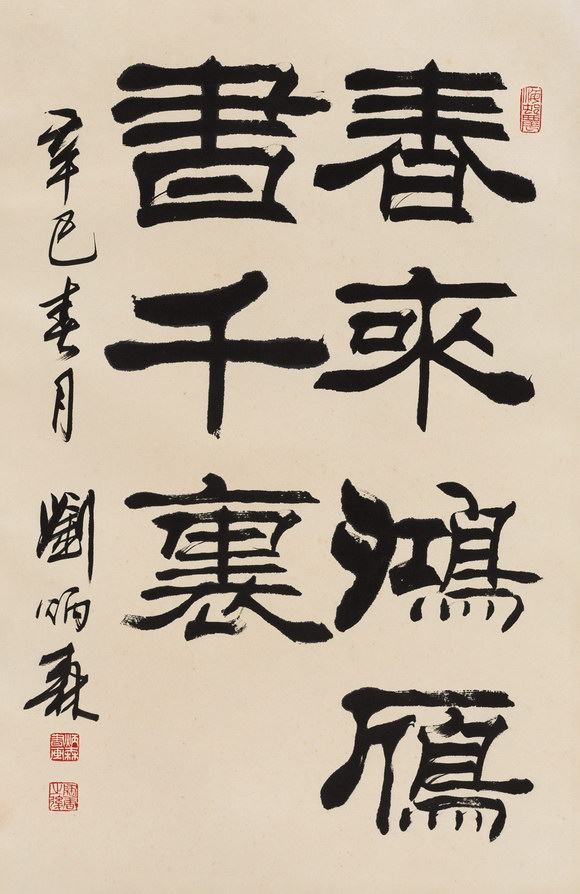 春來鴻鴈
書千裏
辛巳春月 劉炳森